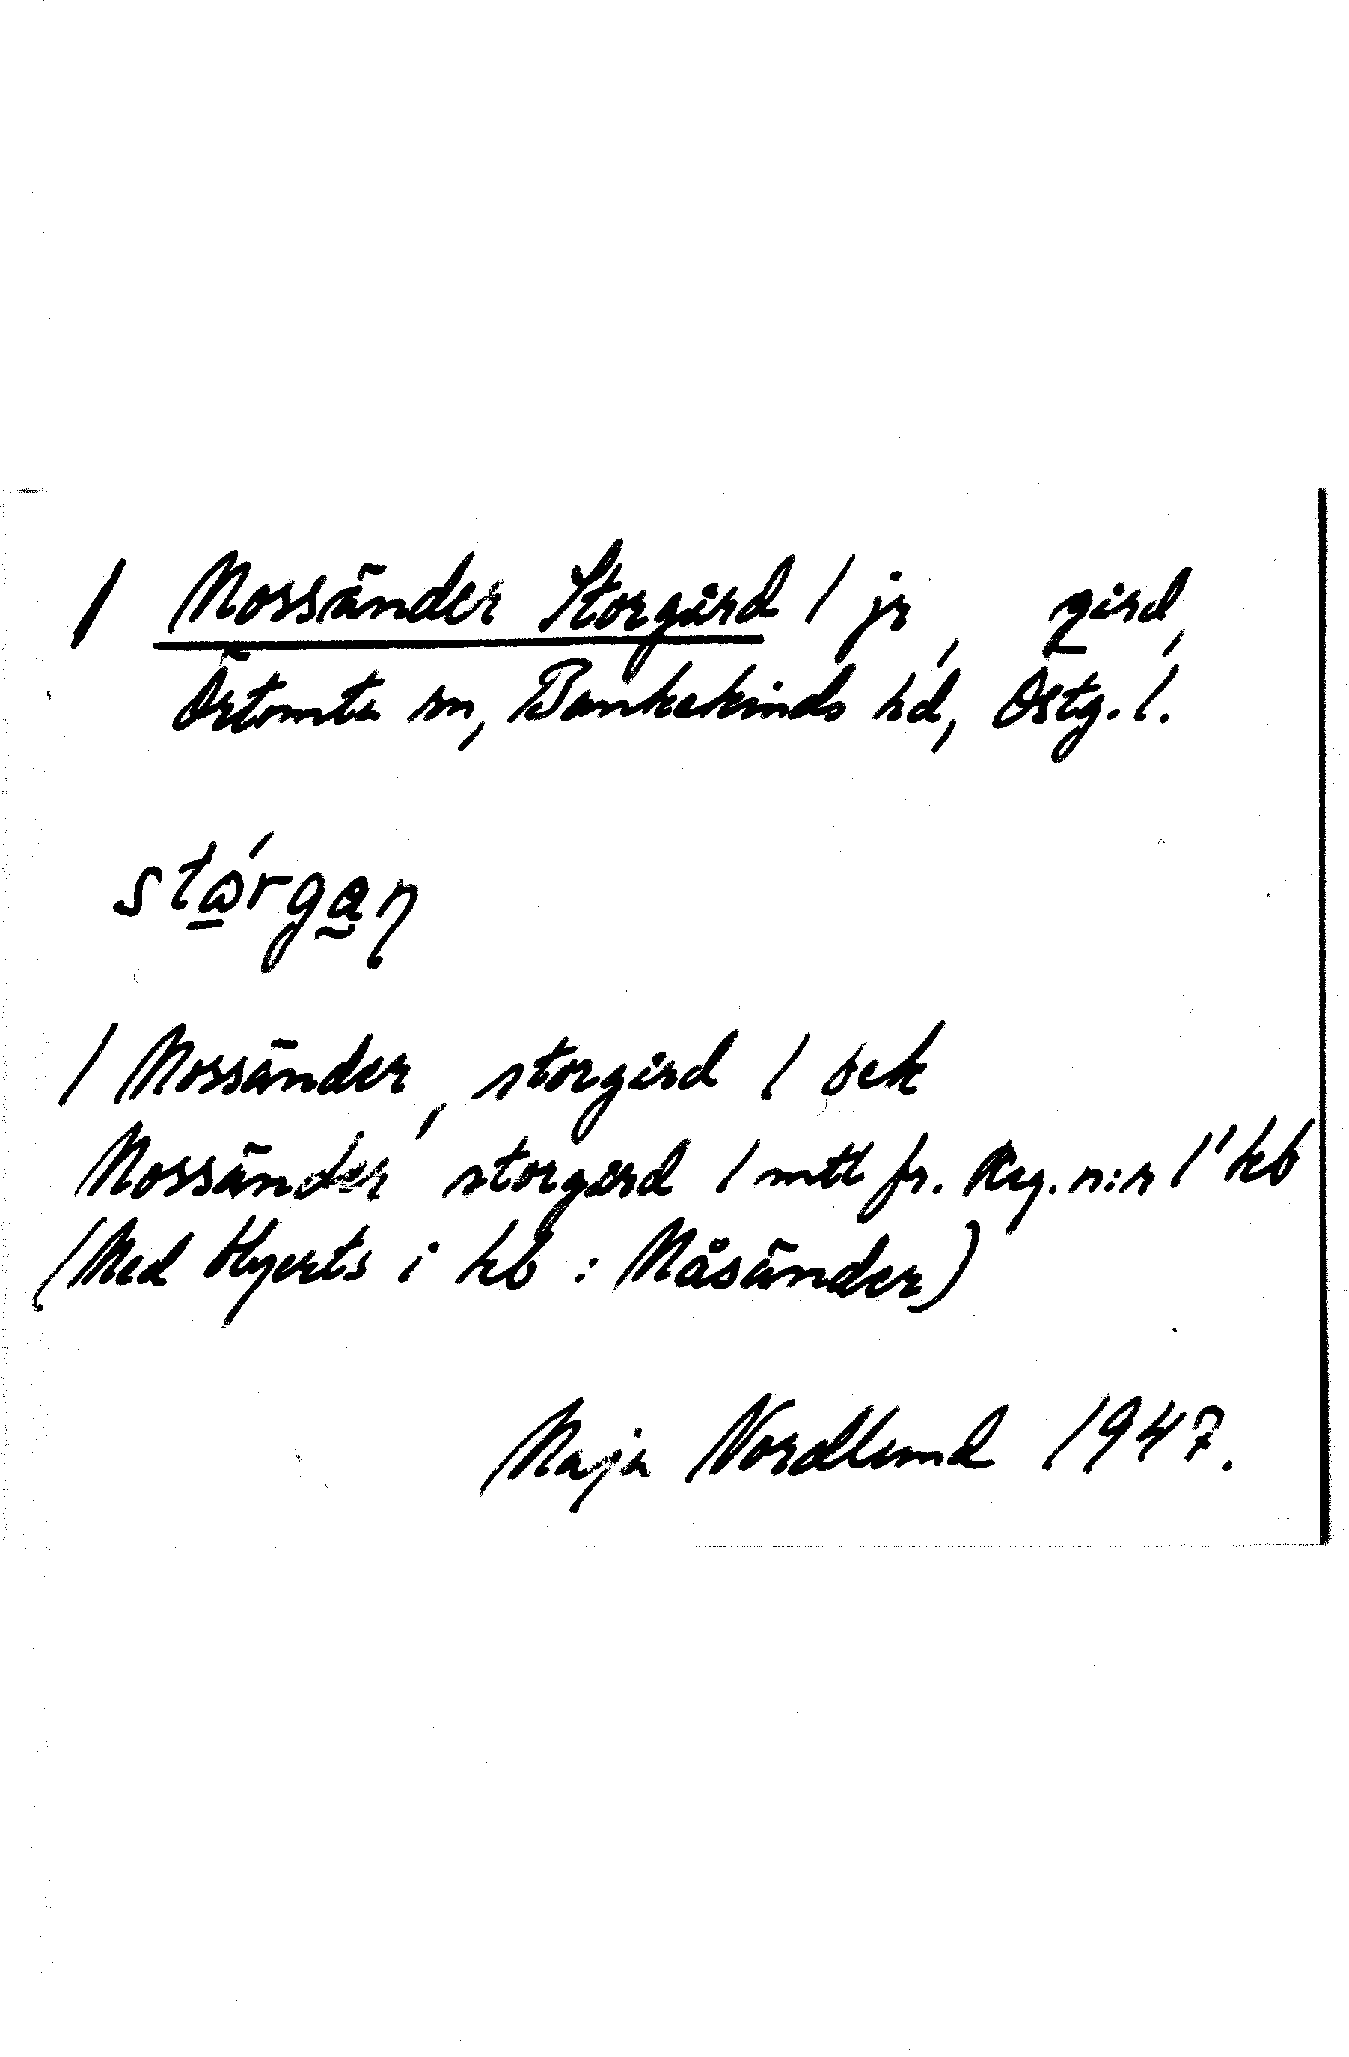 / Mossänder Storgård / jr, gård,
Örtomta sn, Bankekinds hd, Östg. l.
stǿrgan
/ Mossänder, storgård / oek
Mossänder storgård 1 mtl fr. Reg. n:r 1' kb
(Med Hjerts i kb : Måsänder)
Maja Nordlund 1947.